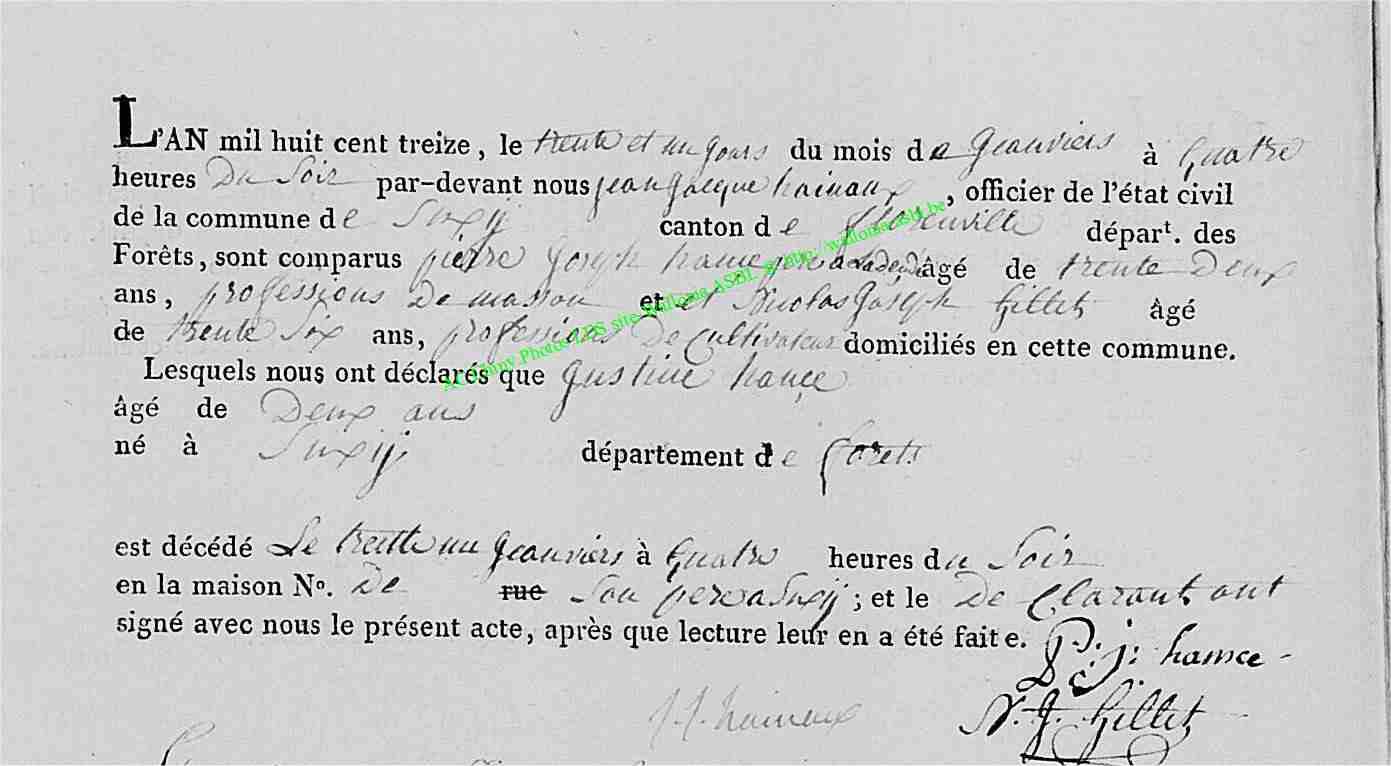 L'AN mil huit cent treize, le trente et un jours du mois de Geauviers à Quatre
heures Du Soir par-devant nous jean Jacque hainaux, officier de l'état civil
de la commune de Suxÿ canton de florenville départ. des
Forêts, sont comparus pierre Joseph hance pere âgé de trente Deux
ans, professions De masson et et Nicolas Joseph Gillet âgé
de trente Six ans, professions De Cultivateur domiciliés en cette commune.
Lesquels nous ont déclarés que Gustine hance
âgé de Deux ans
né à Suxÿ département de forets
est décédé Le trente un geauviers à Quatre heures du Soir
en la maison N°. De rue Son pere a Suxÿ; et le De Clarant ont
signé avec nous le présent acte, après que lecture leur en a été faite.
P: j: hance
J. J. hainaux
N. J. Gillet